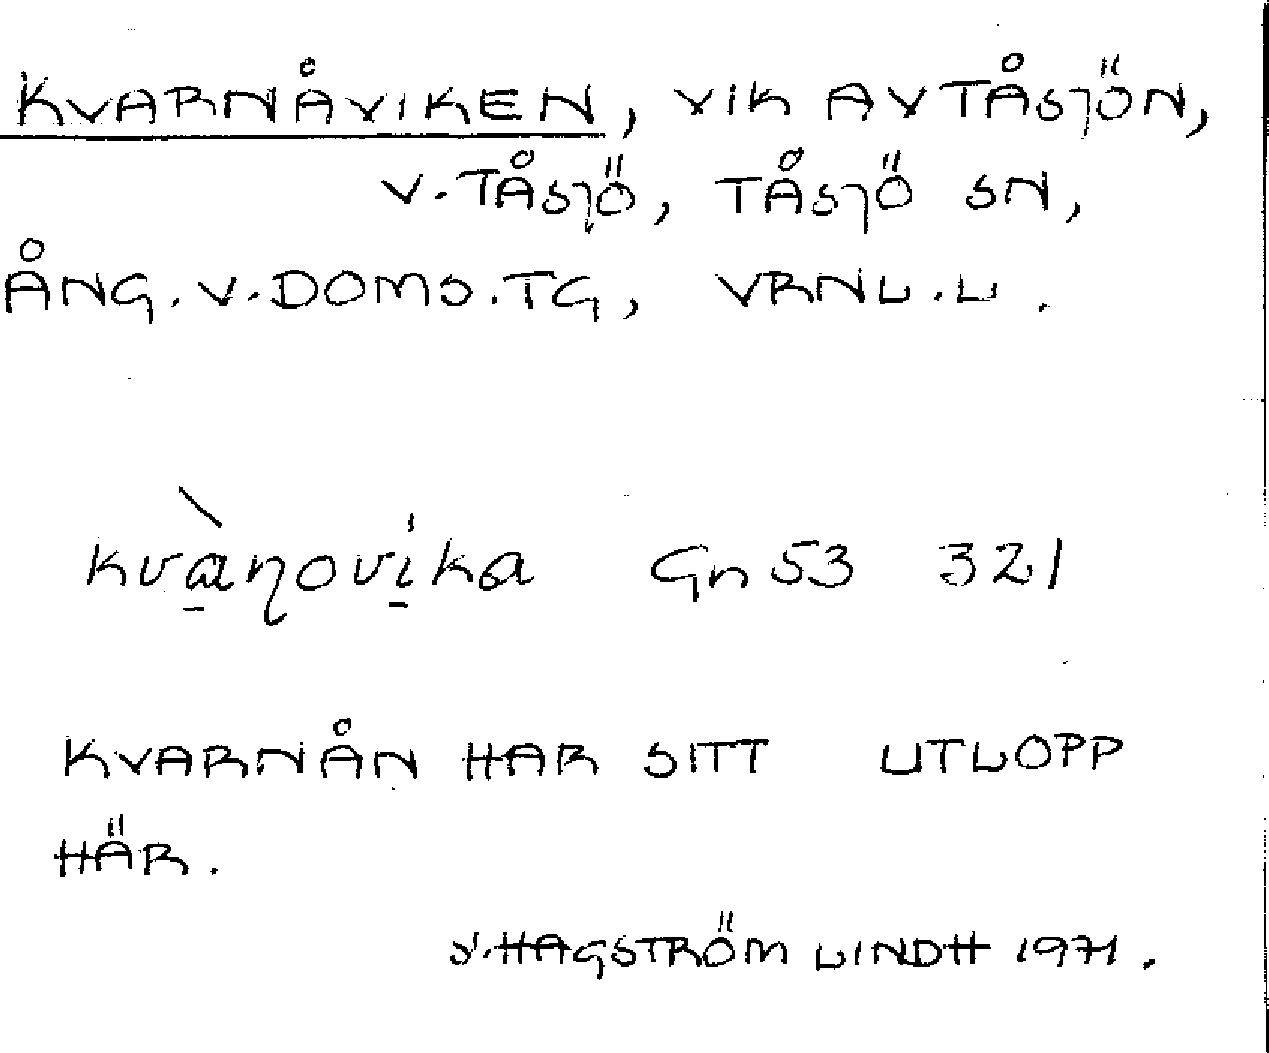 KVARNÅVIKEN, VIK AV TÅSJÖN,
V. TÅSJÖ, TÅSJÖ SN,
ÅNG. V. DOMS. TG, VRNL. L.
kvànovika Gn 53 321
KVARNÅN HAR SITT UTLOPP
HÄR.
S. HAGSTRÖM LINDH 1971.